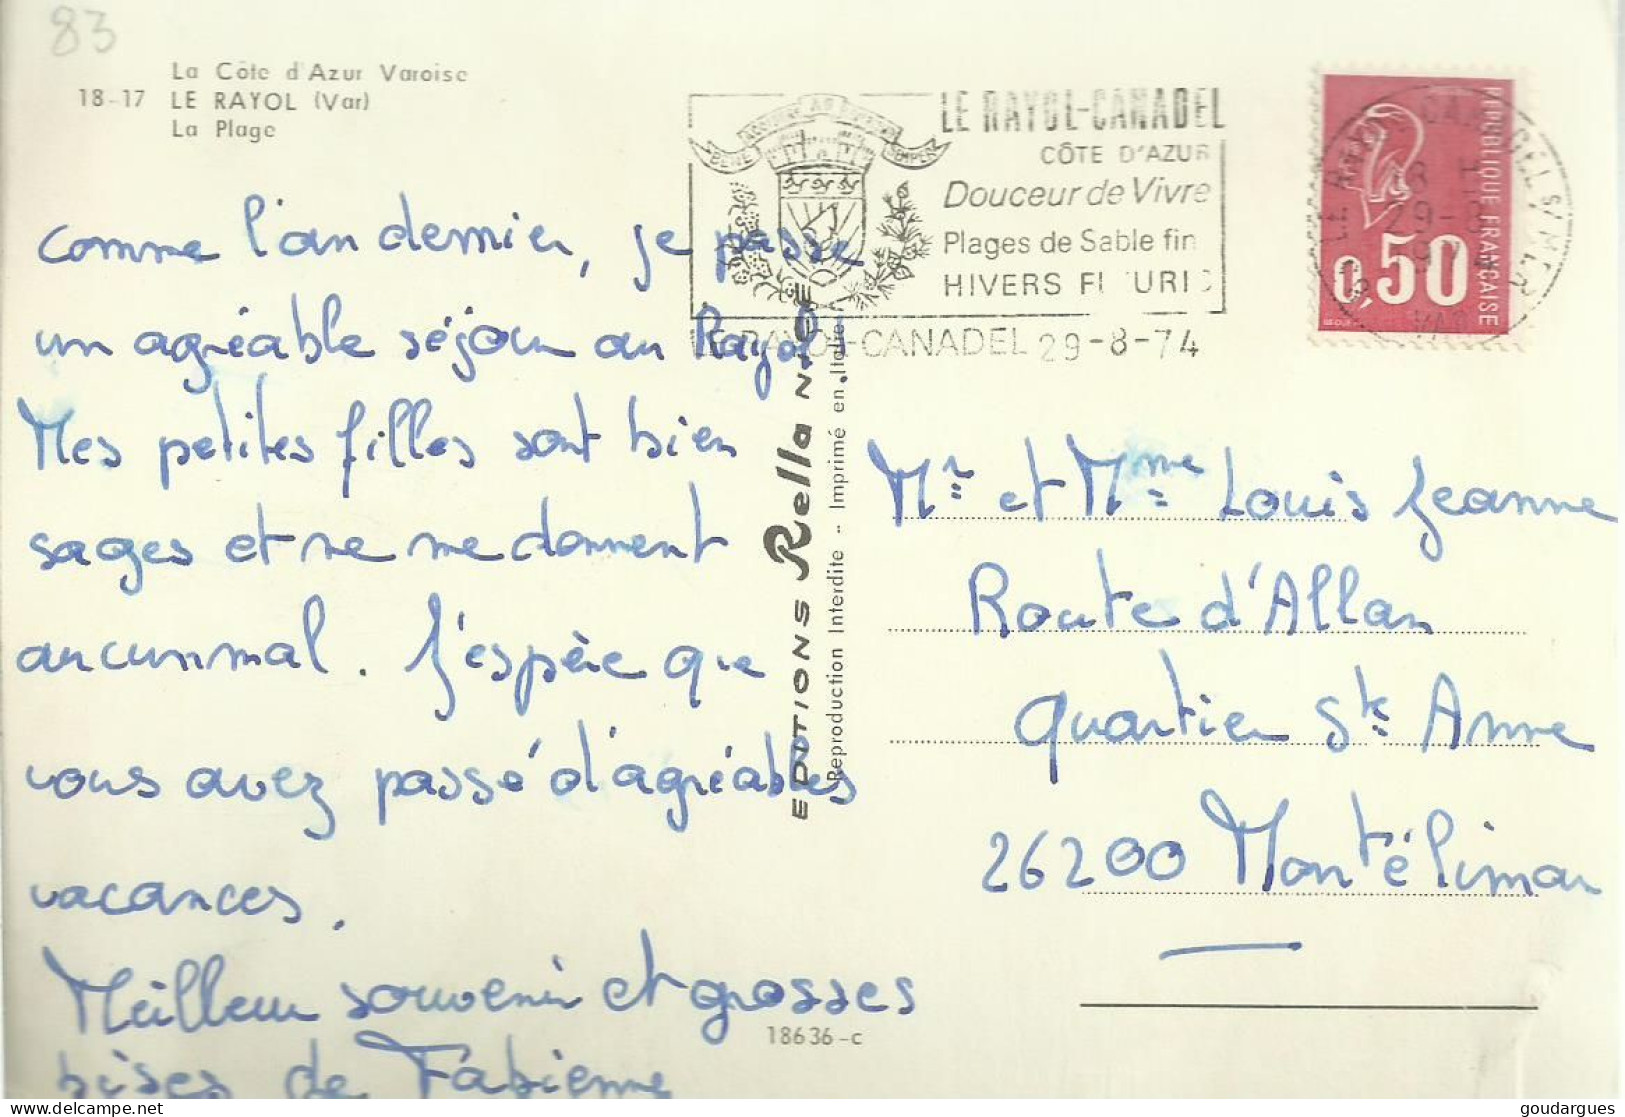 83
La Côte d'Azur Varoise
18-17 LE RAYOL (Var)
La Plage
comme l'an dernier, je passe
un agréable séjour au Rayol.
Mes petites filles sont bien
sages et ne me donnent
aucun mal. J'espère que
vous avez passé d'agréables
vacances.
Meilleur souvenir et grosses
bises de Fabienne
LE RAYOL-CANADEL
CÔTE D'AZUR
Douceur de Vivre
Plages de Sable fin
HIVERS FL URIS
LE RAYOL-CANADEL 29-8-74
REPUBLIQUE FRANÇAISE
0,50
EDITIONS Rella NICE
Reproduction Interdite -- Imprimé en Italie
Mr et Mme Louis Jeanne
Route d'Allan
Quartier Ste Anne
26200 Montélimar
18636-c
goudargues